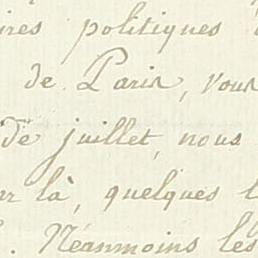 ires politiques
de Paris, vous
de juillet, nous
là, quelques
. Néanmoins les